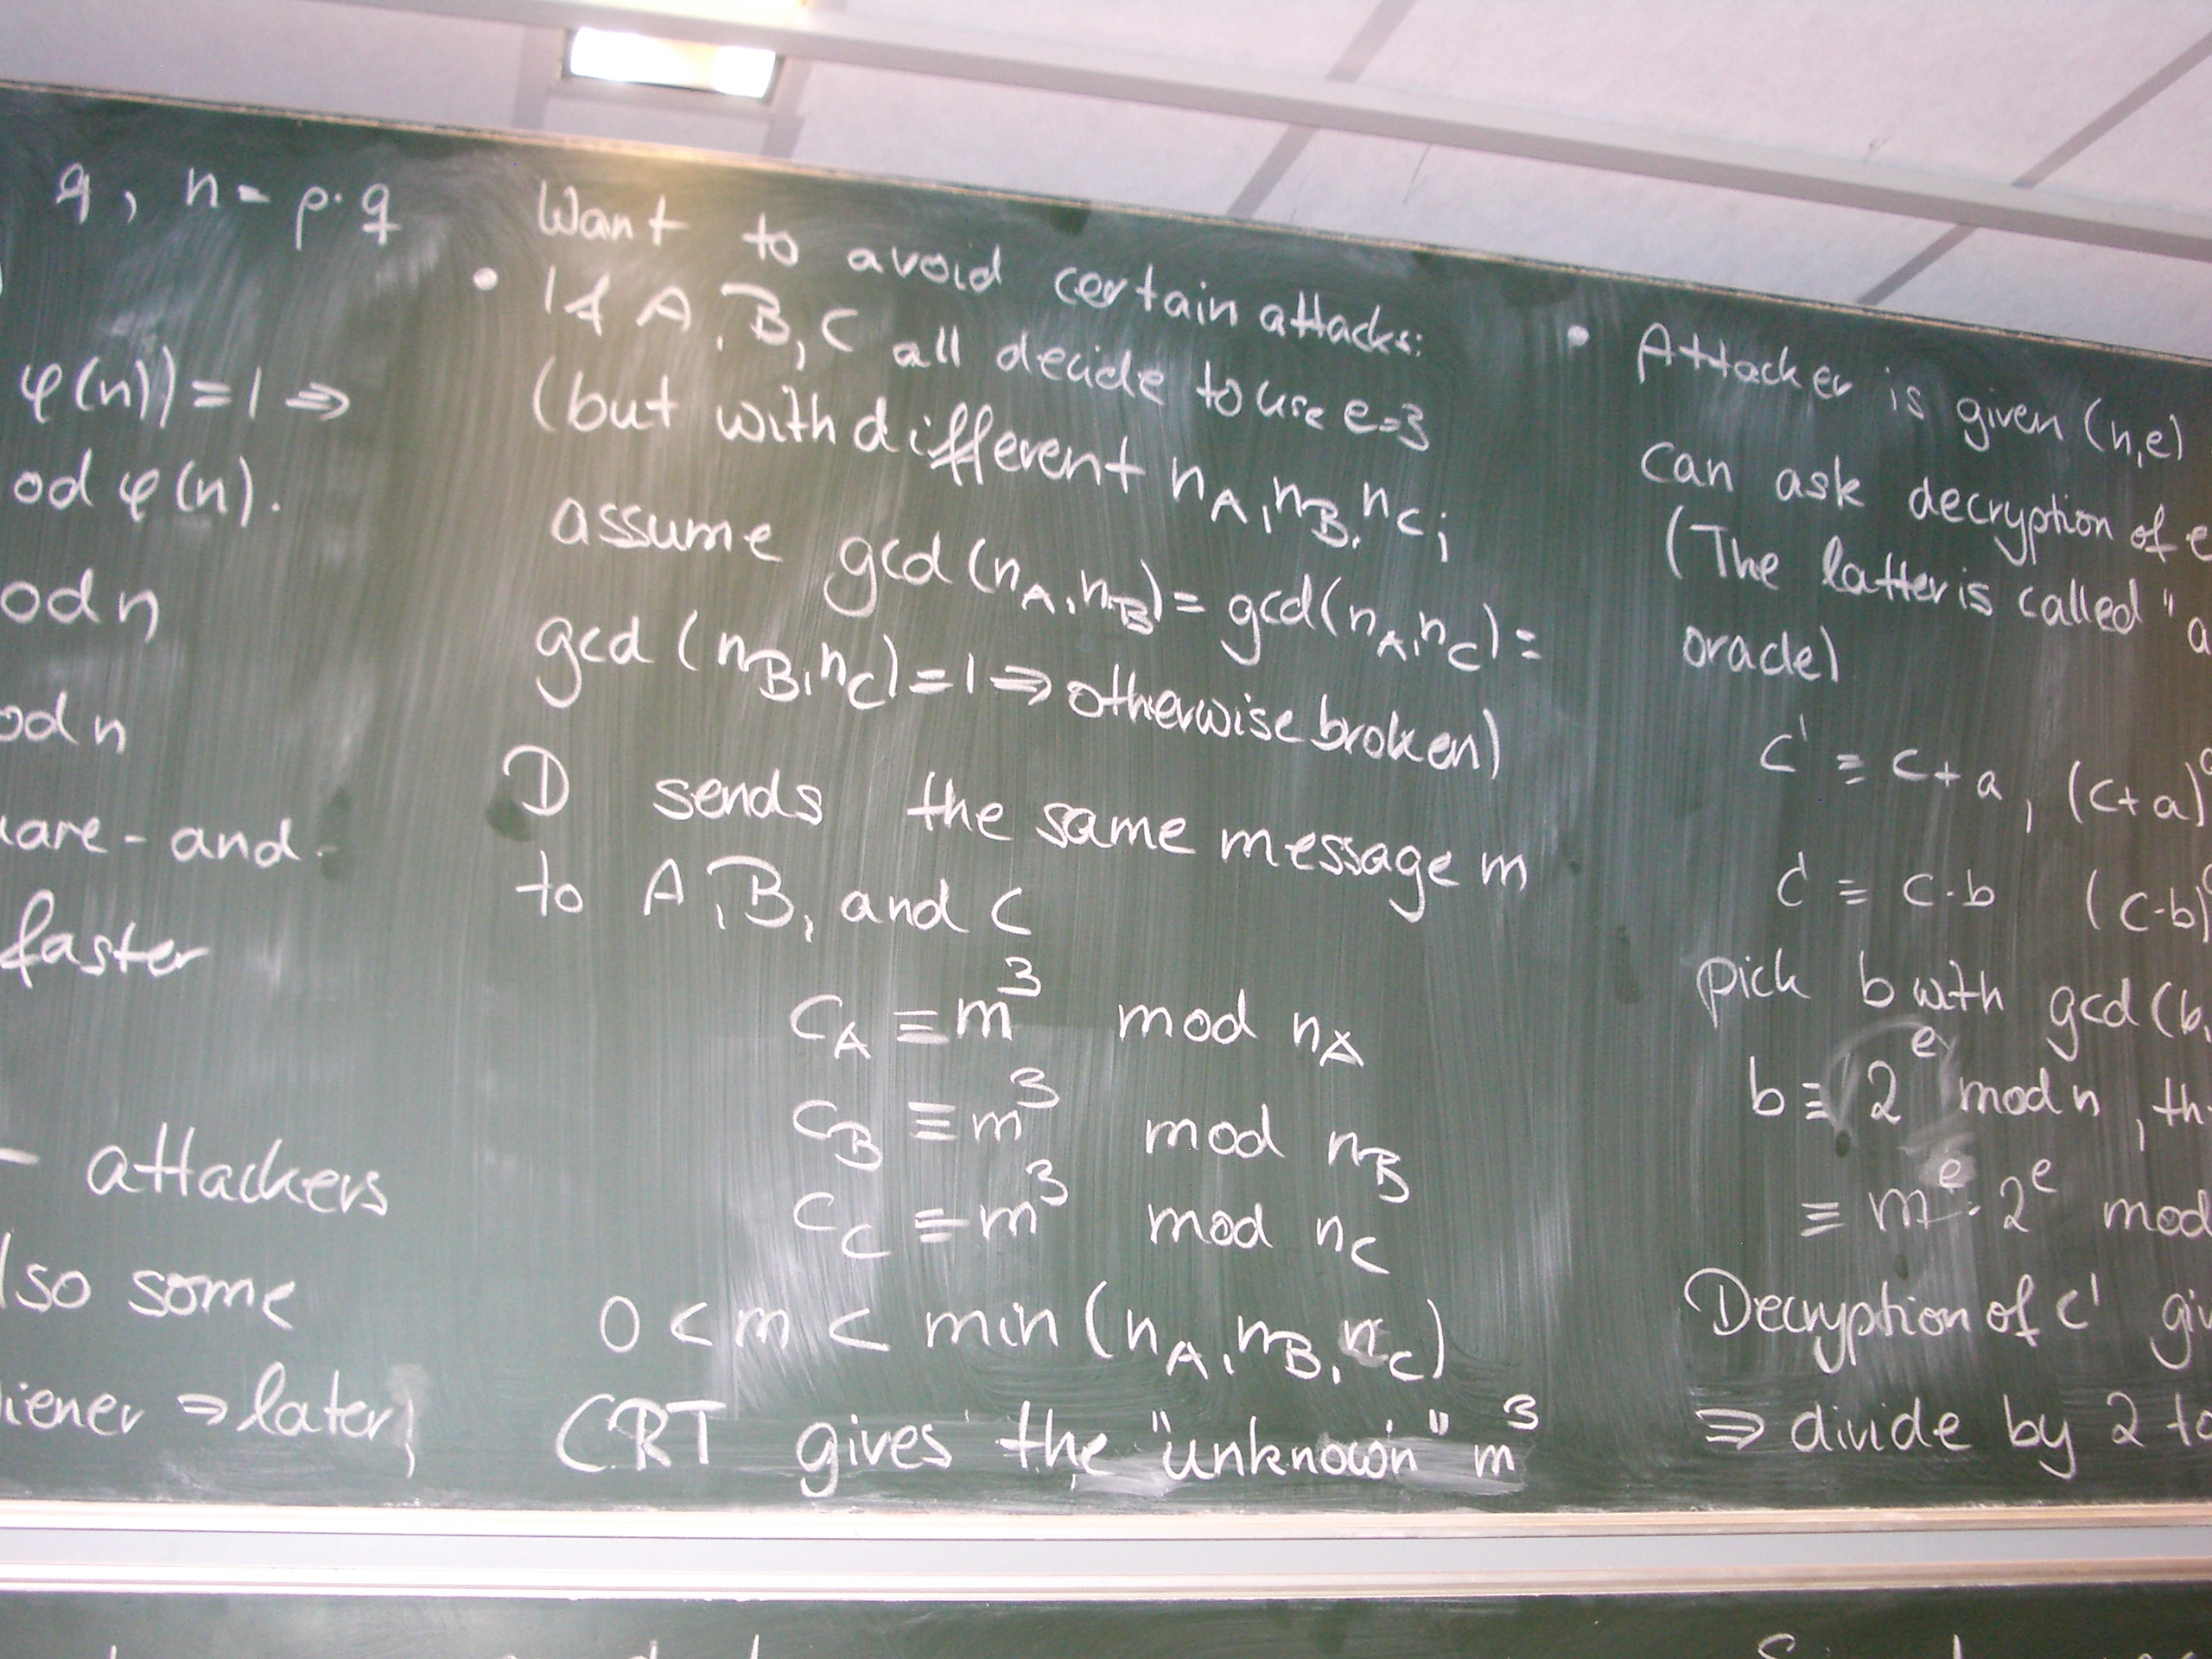 q, n = p·q
φ(n)) = 1 ⇒
od φ(n).
od n
od n
uare-and-
faster
- attackers
lso some
iener ⇒ later)
Want to avoid certain attacks:
• If A, B, C all decide to use e=3
(but with different n_A, n_B, n_C;
assume gcd(n_A, n_B) = gcd(n_A, n_C) =
gcd(n_B, n_C) = 1 ⇒ otherwise broken)
D sends the same message m
to A, B, and C
c_A ≡ m³ mod n_A
c_B ≡ m³ mod n_B
c_C ≡ m³ mod n_C
0 < m < min(n_A, n_B, n_C)
CRT gives the "unknown" m³
• Attacker is given (n,e)
can ask decryption of e
(The latter is called "a
oracle)
c' ≡ c+a, (c+a)
c' ≡ c·b (c·b)
pick b with gcd(b,
b ≡ 2^e mod n, th
≡ m^e · 2^e mod
Decryption of c' gi
⇒ divide by 2 to